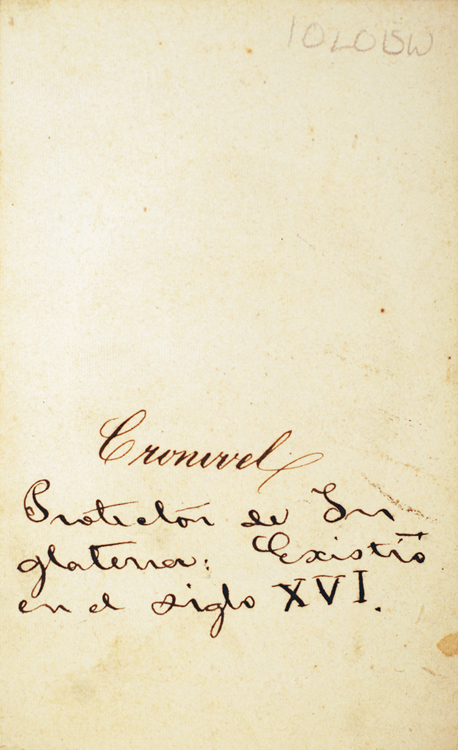 10LOBW
Cromvel
Protectór de In
glaterra: Existió
en el siglo XVI.